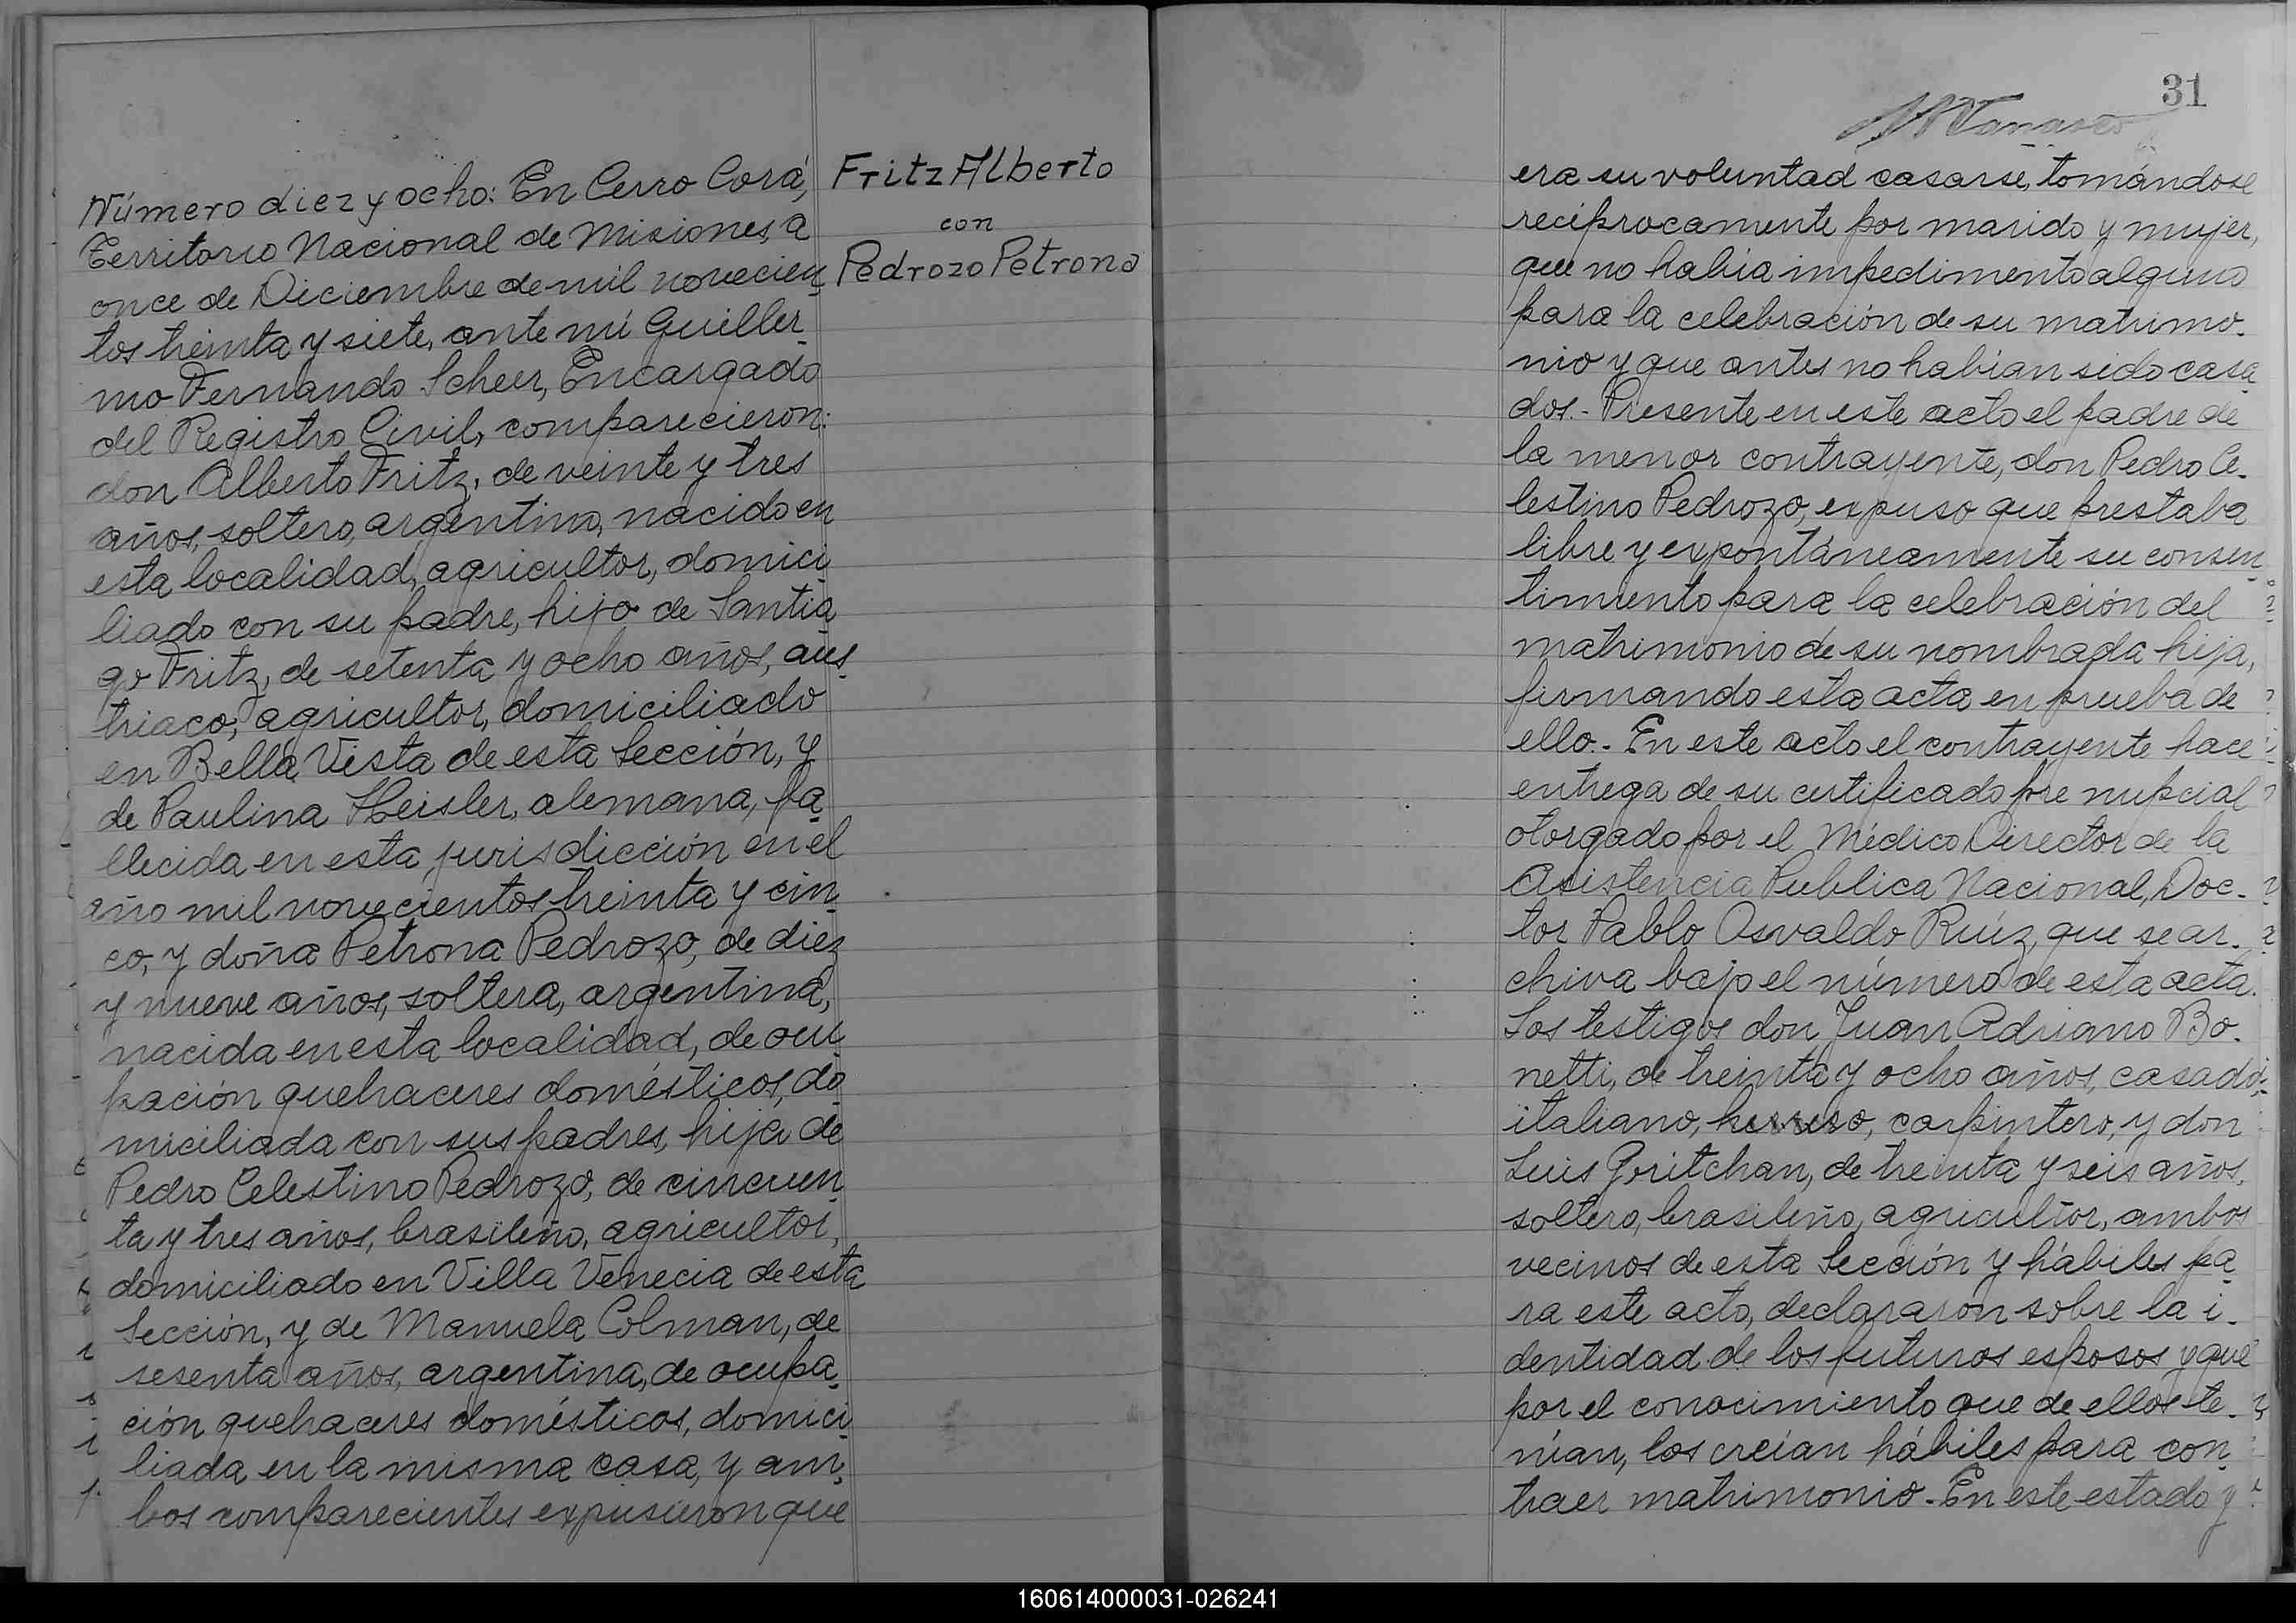 Número diez y ocho: En Cerro Corá,
Territorio Nacional de Misiones, a
once de Diciembre de mil novecien
tos treinta y siete, ante mí Guiller
mo Fernando Scheer, Encargado
del Registro Civil, comparecieron:
don Alberto Fritz, de veinte y tres
años, soltero, argentino, nacido en
esta localidad, agricultor, domici
liado con su padre, hijo de Santia
go Fritz, de setenta y ocho años, aus
triaco, agricultor, domiciliado
en Bella Vista de esta Sección, y
de Paulina Heisler, alemana, fa
llecida en esta jurisdicción en el
año mil novecientos treinta y cin
co, y doña Petrona Pedrozo, de diez
y nueve años, soltera, argentina,
nacida en esta localidad, de ocu
pación quehaceres domésticos, do
miciliada con sus padres, hija de
Pedro Celestino Pedrozo, de cincuen
ta y tres años, brasileño, agricultor,
domiciliado en Villa Venecia de esta
Sección, y de Manuela Colman, de
sesenta años, argentina, de ocupa
ción quehaceres domésticos, domici
liada en la misma casa, y am
bos comparecientes expusieron que
Fritz Alberto
con
Pedrozo Petrona
31
era su voluntad casarse, tomándose
recíprocamente por marido y mujer,
que no había impedimento alguno
para la celebración de su matrimo-
nio y que antes no habían sido casa
dos.- Presente en este acto el padre de
la menor contrayente, don Pedro Ce-
lestino Pedrozo, expuso que prestaba
libre y expontáneamente su consen
timiento para la celebración del
matrimonio de su nombrada hija,
firmando esta acta en prueba de
ello.- En este acto el contrayente hace
entrega de su certificado pre nupcial
otorgado por el Médico Director de la
Asistencia Publica Nacional, Doc-
tor Pablo Osvaldo Ruíz, que se ar-
chiva bajo el número de esta acta.
Los testigos don Juan Adriano Bo-
netti, de treinta y ocho años, casado,
italiano, herrero, carpintero, y don
Luis Gritchan, de treinta y seis años,
soltero, brasileño, agricultor, ambos
vecinos de esta Sección y hábiles pa
ra este acto, declararon sobre la i-
dentidad de los futuros esposos y que
por el conocimiento que de ellos te-
nían, los creían hábiles para con
traer matrimonio.- En este estado y
160614000031-026241